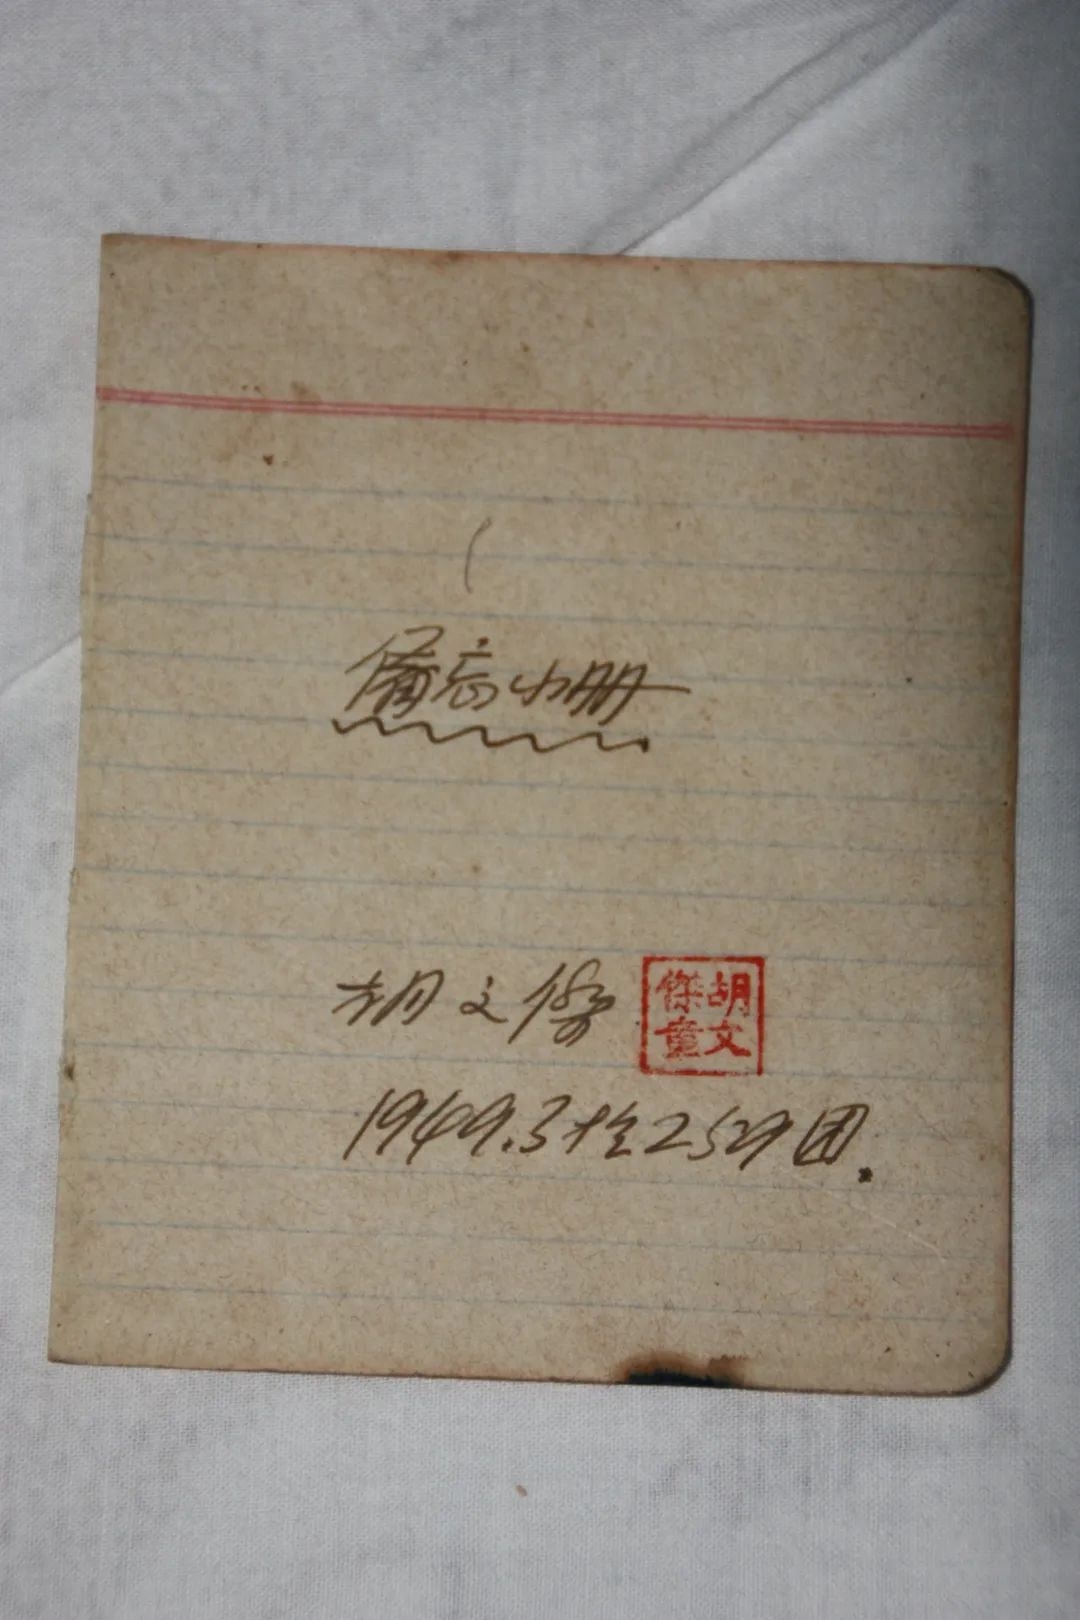 備忘小册
胡文傑
胡文傑章
1949.3於259团.